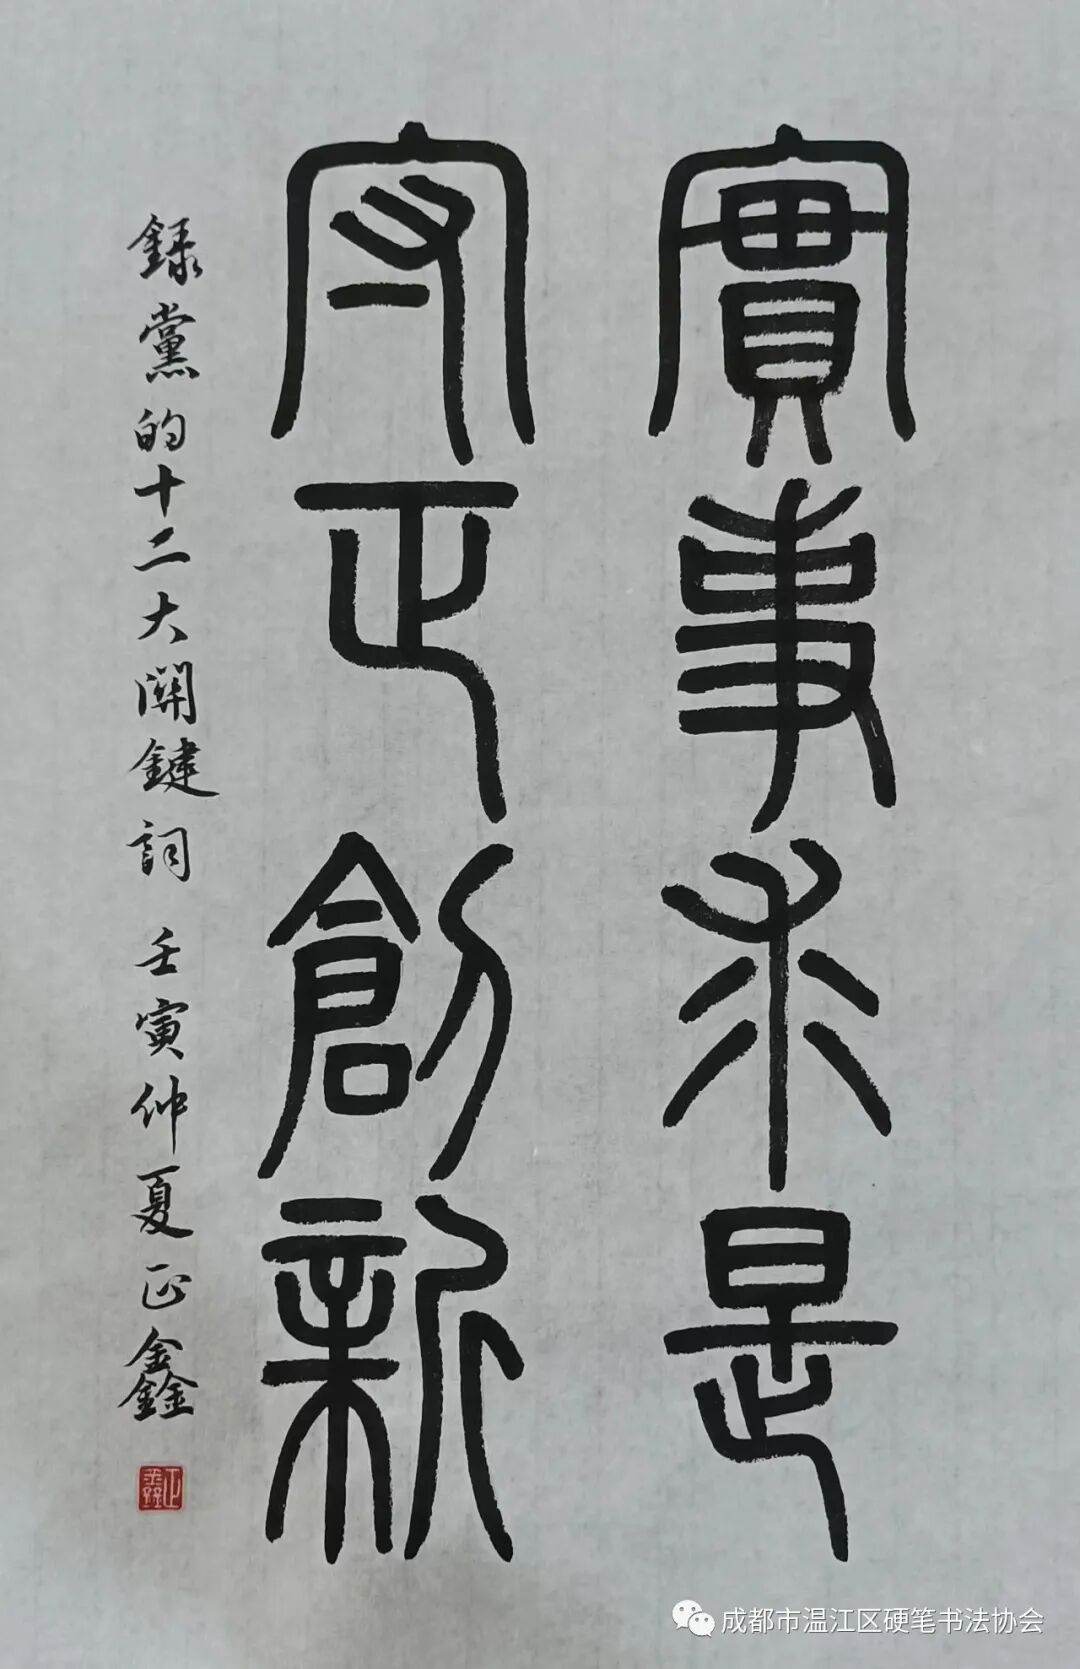 實事求是
守正創新
錄黨的十二大關鍵詞 壬寅仲夏 正鑫
正鑫
成都市温江区硬笔书法协会